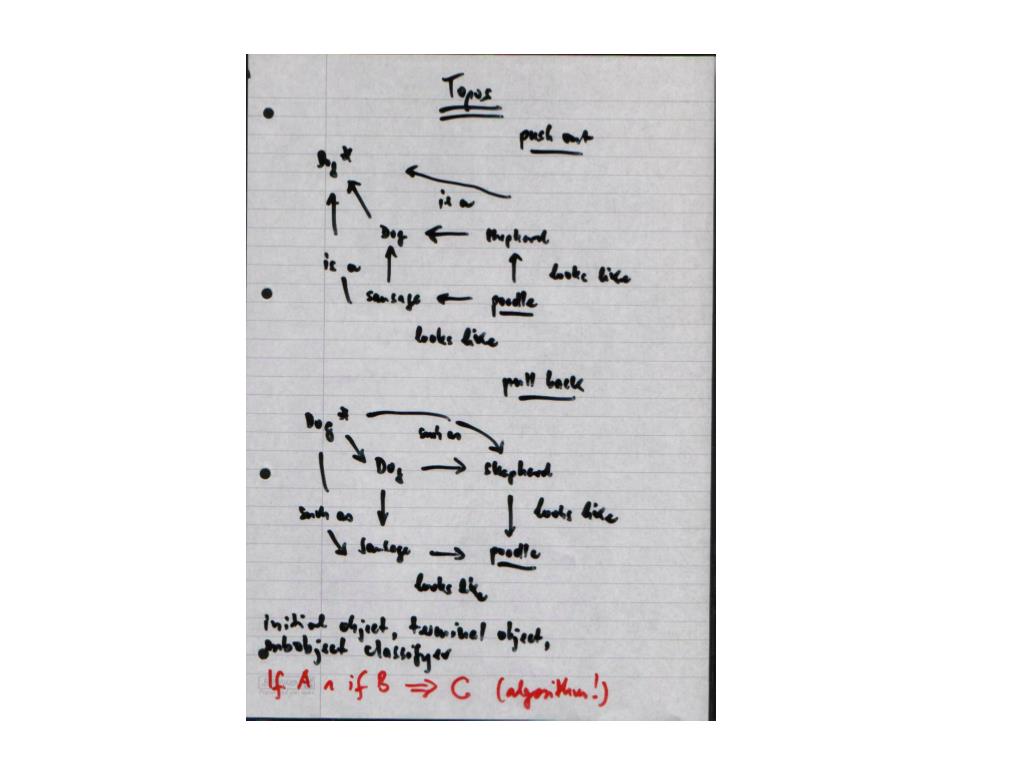 Topos
push out
Dog*
is a
Dog ← Shepherd
is a
looks like
sausage ← poodle
looks like
pull back
Dog*
such as
Dog → Shepherd
such as
looks like
Sausage → poodle
looks like
initial object, terminal object,
subobject classifyer
If A ∧ if B ⇒ C (algorithm!)